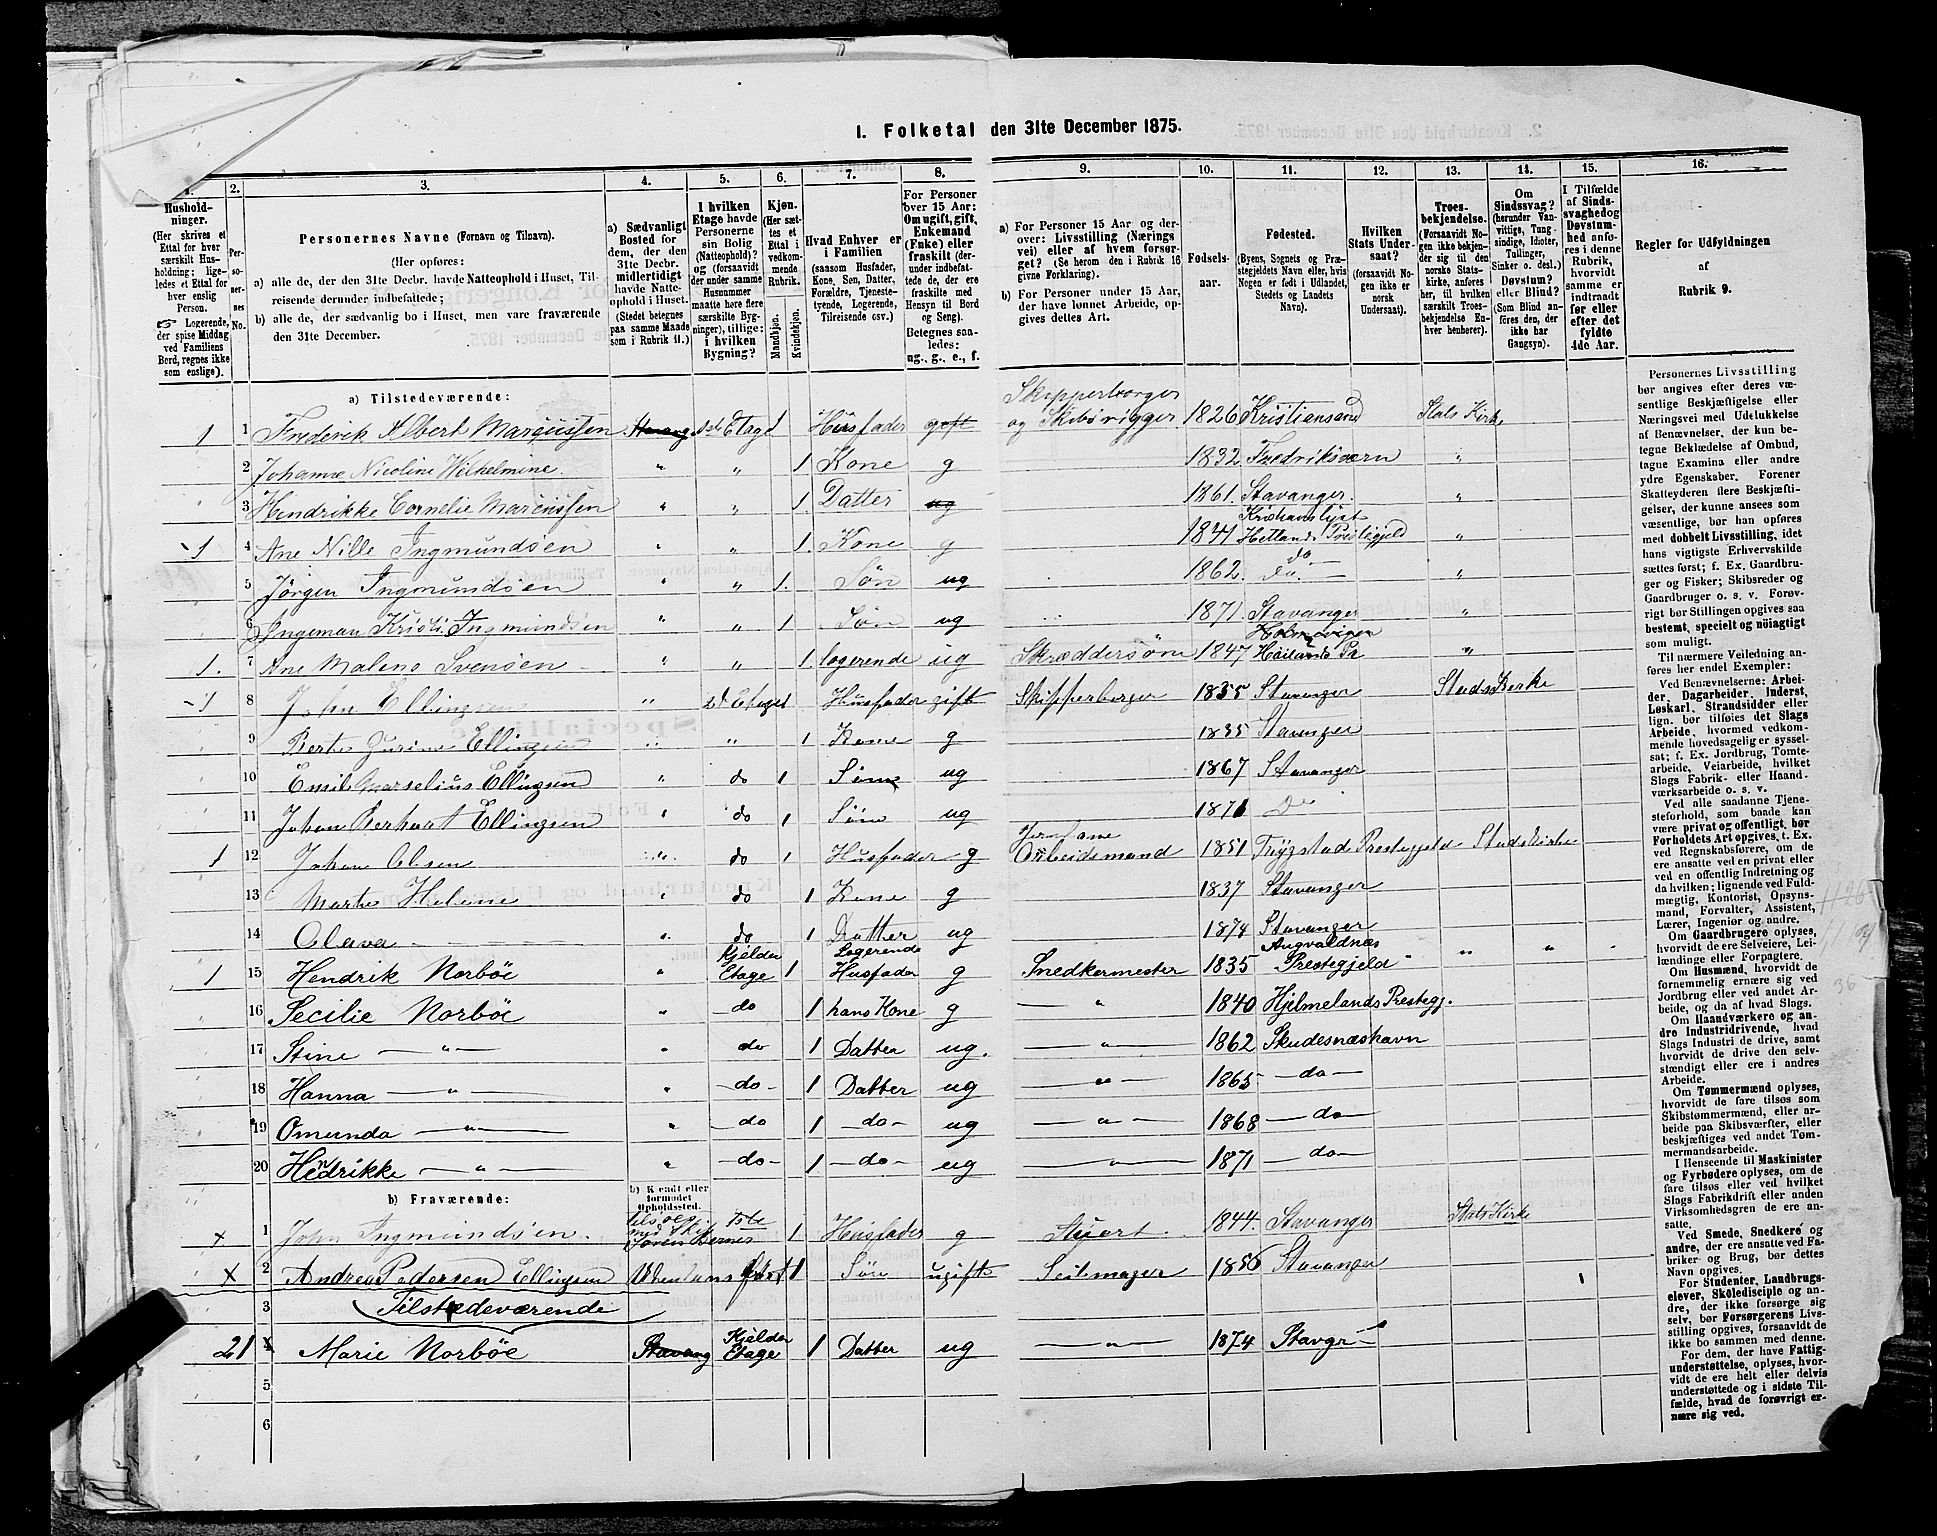 1. Folketal den 31te December 1875.
1. 2. 3. 4. 5. 6. 7. 8. 9. 10. 11. 12. 13. 14. 15. 16.
Hushold-
ninger.
(Her skrives et
Ettal for hver
særskilt Hus-
holdning; lige-
ledes et Ettal
for hver
enslig
Person.
☞ Logerende,
der spise Middag
ved Familiens
Bord, regnes ikke
som enslige).
Per-
so-
ner-
nes
No.
Personernes Navne (Fornavn og Tilnavn).
(Her opføres:
a) alle de, der den 31te Decbr. havde Natteophold i Huset, Til-
reisende derunder indbefattede;
b) alle de, der sædvanlig bo i Huset, men vare fraværende
den 31te December.
a) Sædvanligt
Bosted for
dem, der den
31te Decbr.
midlertidigt
havde Natte-
ophold i Huset.
(Stedet betegnes
paa samme Maade
som i Rubrik 11.)
I hvilken
Etage havde
Personerne
sin Bolig
(Natteophold?)
og (forsaavidt
der under samme
Husnummer
maatte høre flere
særskilte Byg-
ninger), tillige:
i hvilken
Bygning?
Kjøn.
(Her sæt-
tes et
Ettal i
vedkom-
mende
Rubrik.)
Mandkjøn.
Kvindekjøn.
Hvad Enhver er
i Familien
(saasom Husfader,
Kone, Søn, Datter,
Forældre, Tjeneste-
tyende, Logerende,
Tilreisende osv.)
For Personer
over 15 Aar:
Om ugift, gift,
Enkemand
(Enke) eller
fraskilt (der-
under indbefat-
tede de, der ere
fraskilte med
Hensyn til Bord
og Seng).
Betegnes saa-
ledes:
ug., g., e., f.
a) For Personer 15 Aar og der-
over: Livsstilling (Nærings
vei) eller af hvem forsør-
get? (Se herom den i Rubrik 16
givne Forklaring).
b) For Personer under 15 Aar,
der have lønnet Arbeide, op-
gives dettes Art.
Fødsels-
aar.
Fødested.
(Byens, Sognets og Præ-
stegjeldets Navn eller, hvis
Nogen er født i Udlandet,
Stedets og Landets
Navn).
Hvilken
Stats Under-
saat?
(forsaavidt No-
gen ikke er
norsk
Undersaat).
Troes-
bekjendelse.
(Forsaavidt No-
gen ikke bekjen-
der sig til den
norske Stats-
kirke, anføres
her, til hvilken
særskilt Troes-
bekjendelse En-
hver henhører).
Om
Sindssvag?
(herunder Van-
vittige, Tung-
sindige, Idioter,
Tullinger,
Sinker o. desl.)
Døvstum?
eller Blind?
(Som Blind an-
føres den, der
ikke har
Gangsyn).
I Tilfælde
af Sinds-
svaghed og
Døvstum-
hed anfø-
res i denne
Rubrik,
hvorvidt
samme er
indtraadt
før eller
efter det
fyldte
4de Aar.
Regler for Udfyldningen
af
Rubrik 9.
a) Tilstedeværende:
1 1 Frederik Albert Marcussen Stavang 1ste Etage 1 Husfader gift Skipperborger og Skibsrigger 1826 Kristiansand Stats Kirke
2 Johanne Nicoline Wilhelmine. " " 1 Kone g 1832 Fredriksværn "
3 Hendrikke Cornelie Marcussen " " 1. Datter ug 1861. Stavanger. "
1 4 Ane Nille Ingmundsen " " 1. Kone g 1841 Kristianslyst Hetlands Prestegjeld "
5 Jörgen Ingmundsen " " 1. Sön ug 1862. do. "
6 Ingeman Kristi. Ingmundsen " " 1 Sön ug 1871. Stavanger "
1. 7 Ane Malena Svensen " " 1 logerende ug Skræddersöm 1847 Pr "
1 8 John Ellingsen " 2d Etage 1 Husfader gift Skipperborger 1835 Stavanger Stads Kirke
9 Berte Ellingsen " " 1 Kone g 1835 Stavanger
10 Emil Marselius Ellingsen " do 1 Sön ug 1867 Stavanger
11 Johan Berhart Ellingsen " do 1 Söne ug 1871 Do
1 12 Johan Olsen " do 1 Husfader g Arbeidsmand 1851 Trygstad Prestegjeld Stadskirke
13 Marte Helene " do 1 Kone g 1837 Stavanger
14 Olava " do 1 Datter ug 1874 Stavanger
1 15 Hendrik Norböe " Kjelder Etage 1 Logerende Husfader g Snedkermester 1835 Augvaldnæs Prestegjeld " " "
16 Secilie Norböe " do 1 hans Kone g " 1840 Hjelmelands Prestegj.
17 Stine — " — " do 1 Datter ug. " 1862 Skudesnæshavn
18 Hanna — " — " do 1 Datter ug " 1865 do
19 Omunda — " — " do 1 do ug " 1868 do
20 Hendrikke — " — " do 1 do ug " 1871 do
b) Fraværende:
b) Kjendt eller
formodet
Opholdssted.
x 1 John Ingmundsen. 1ste 1 Husfader g Styert. 1844. Stavanger Stats Kirke
x 2 Andreas Pedersen Ellingsen Udenlans fart 1 Sön ugift Seilmager 1856 Stavanger
3 (Tilstedeværende
21 4 Marie Norböe Stavang Kjelder Etage 1 Datter ug " 1874 Stavgr
5
6
Personernes Livsstilling
bør angives efter deres væ-
sentlige Beskjæftigelse eller
Næringsvei med Udelukkelse
af Benævnelser, der kun be-
tegne Beklædelse af Ombud,
tagne Examina eller andre
ydre Egenskaber. Forener
Skatteyderen flere Beskjæfti-
gelser, der kunne ansees som
væsentlige, bør han opføres
med dobbelt Livsstilling, idet
hans vigtigste Erhvervskilde
sættes først; f. Ex. Gaardbru-
ger og Fisker; Skibsreder og
Gaardbruger o. s. v. Forøv-
rigt bør Stillingen opgives saa
bestemt, specielt og nöiagtigt
som muligt.
Til nærmere Veiledning an-
føres her endel Exempler:
Ved Benævnelserne: Arbei-
der, Dagarbeider, Inderst,
Løskarl, Strandsidder eller
lign. bør tilføies det Slags
Arbeide, hvormed vedkom-
mende hovedsagelig er syssel-
sat; f. Ex. Jordbrug, Tomte-
arbeide, Veiarbeide, hvilket
Slags Fabrik- eller Haand-
værksarbeide o. s. v.
Ved alle saadanne Tjene-
steforhold, som baade kan
være privat og offentligt, bør
Forholdets Art opgives, t. Ex.
ved Regnskabsførere, om de
ere ansatte ved en privat eller
ved en offentlig Indretning og
da hvilken; lignende ved Fuld-
mægtig, Kontorist, Opsyns-
mand, Forvalter, Assistent,
Lærer, Ingeniør og andre.
Om Gaardbrugere oplyses,
hvorvidt de ere Selveiere, Lei-
lændinge eller Forpagtere.
Om Husmænd, hvorvidt de
fornemmelig ernære sig ved
Jordbrug eller ved andet Ar-
beide, og da af hvad Slags.
Om Haandværkere og an-
dre Industridrivende, hvad
Slags Industri de drive, samt
hvorvidt de drive den selv-
stændigt eller ere i andres
Arbeide.
Om Tømmermænd oplyses,
hvorvidt de fare tilsøs som
Skibstømmermænd, eller ar-
beide paa Skibsværfter, eller
beskjæftiges ved andet Tøm-
mermandsarbeide.
I Henseende til Maskinister
og Fyrbødere oplyses, om de
fare tilsøs eller ved hvilket
Slags Fabrikdrift eller anden
Virksomhedsgren de ere an-
satte.
Ved Smede, Snedkere og
andre, der ere ansatte ved Fa-
briker og Brug, bør dettes
Navn opgives.
For Studenter, Landbrugs-
elever, Skoledisciple og an-
dre, der ikke forsørge sig
selv, bør Forsørgerens Livs-
stilling opgives, forsaavidt de
ikke bo sammen med denne.
For dem, der have Fattig-
understøttelse, oplyses, hvor-
vidt de ere helt eller delvis
understøttede og i sidste Til-
fælde, hvad de forøvrigt er-
nære sig ved.